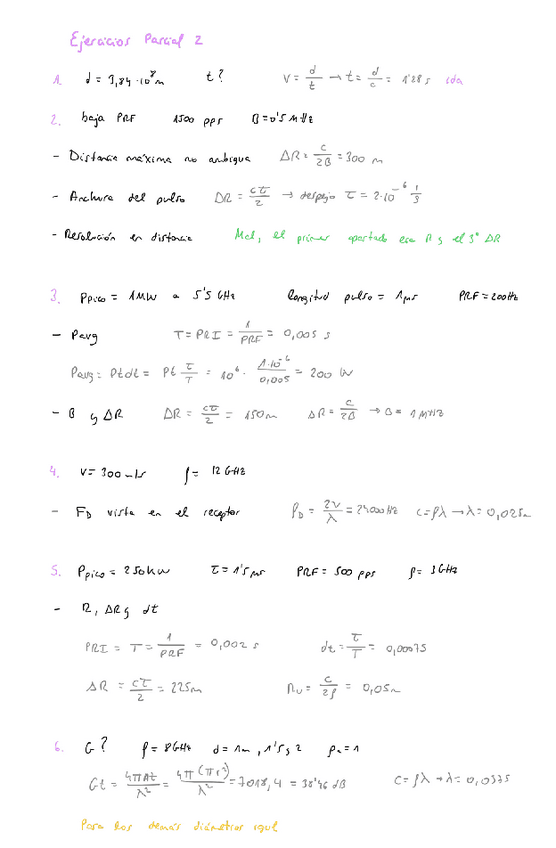 Ejercicios Parcial 2
1. d = 3,84·10⁸ m t? V = d/t → t = d/c = 1'28 s ida
2. baja PRF 1500 pps B = 0'5 MHz
- Distancia máxima no ambigua ΔR = c/2B = 300 m
- Anchura del pulso ΔR = cτ/2 → despejo τ = 2·10⁻⁶ s
- Resolución en distancia Mal, el primer apartado era R y el 3º ΔR
3. Ppico = 1MW a 5'5 GHz longitud pulso = 1μs PRF = 200Hz
- Pavg T = PRI = 1/PRF = 0,005 s
Pavg = Pt dt = Pt τ/T = 10⁶ · 1·10⁻⁶/0,005 = 200 W
- B y ΔR ΔR = cτ/2 = 150m ΔR = c/2B → B = 1 MHz
4. v = 300 m/s f = 12 GHz
- FD vista en el receptor fD = 2v/λ = 24000Hz c = fλ → λ = 0,025m
5. Ppico = 250kW τ = 1'5 μs PRF = 500 pps f = 3GHz
- R, ΔR y dt
PRI = T = 1/PRF = 0,002 s dt = τ/T = 0,00075
ΔR = cτ/2 = 225m Ru = c/2f = 0,05m
6. G? f = 8GHz d = 1m, 1'5 y 2 ρa = 1
Gt = 4πAt/λ² = 4π(πr²)/λ² = 7018,4 = 38'46 dB c = fλ → λ = 0,0375
Para los demás diámetros igual